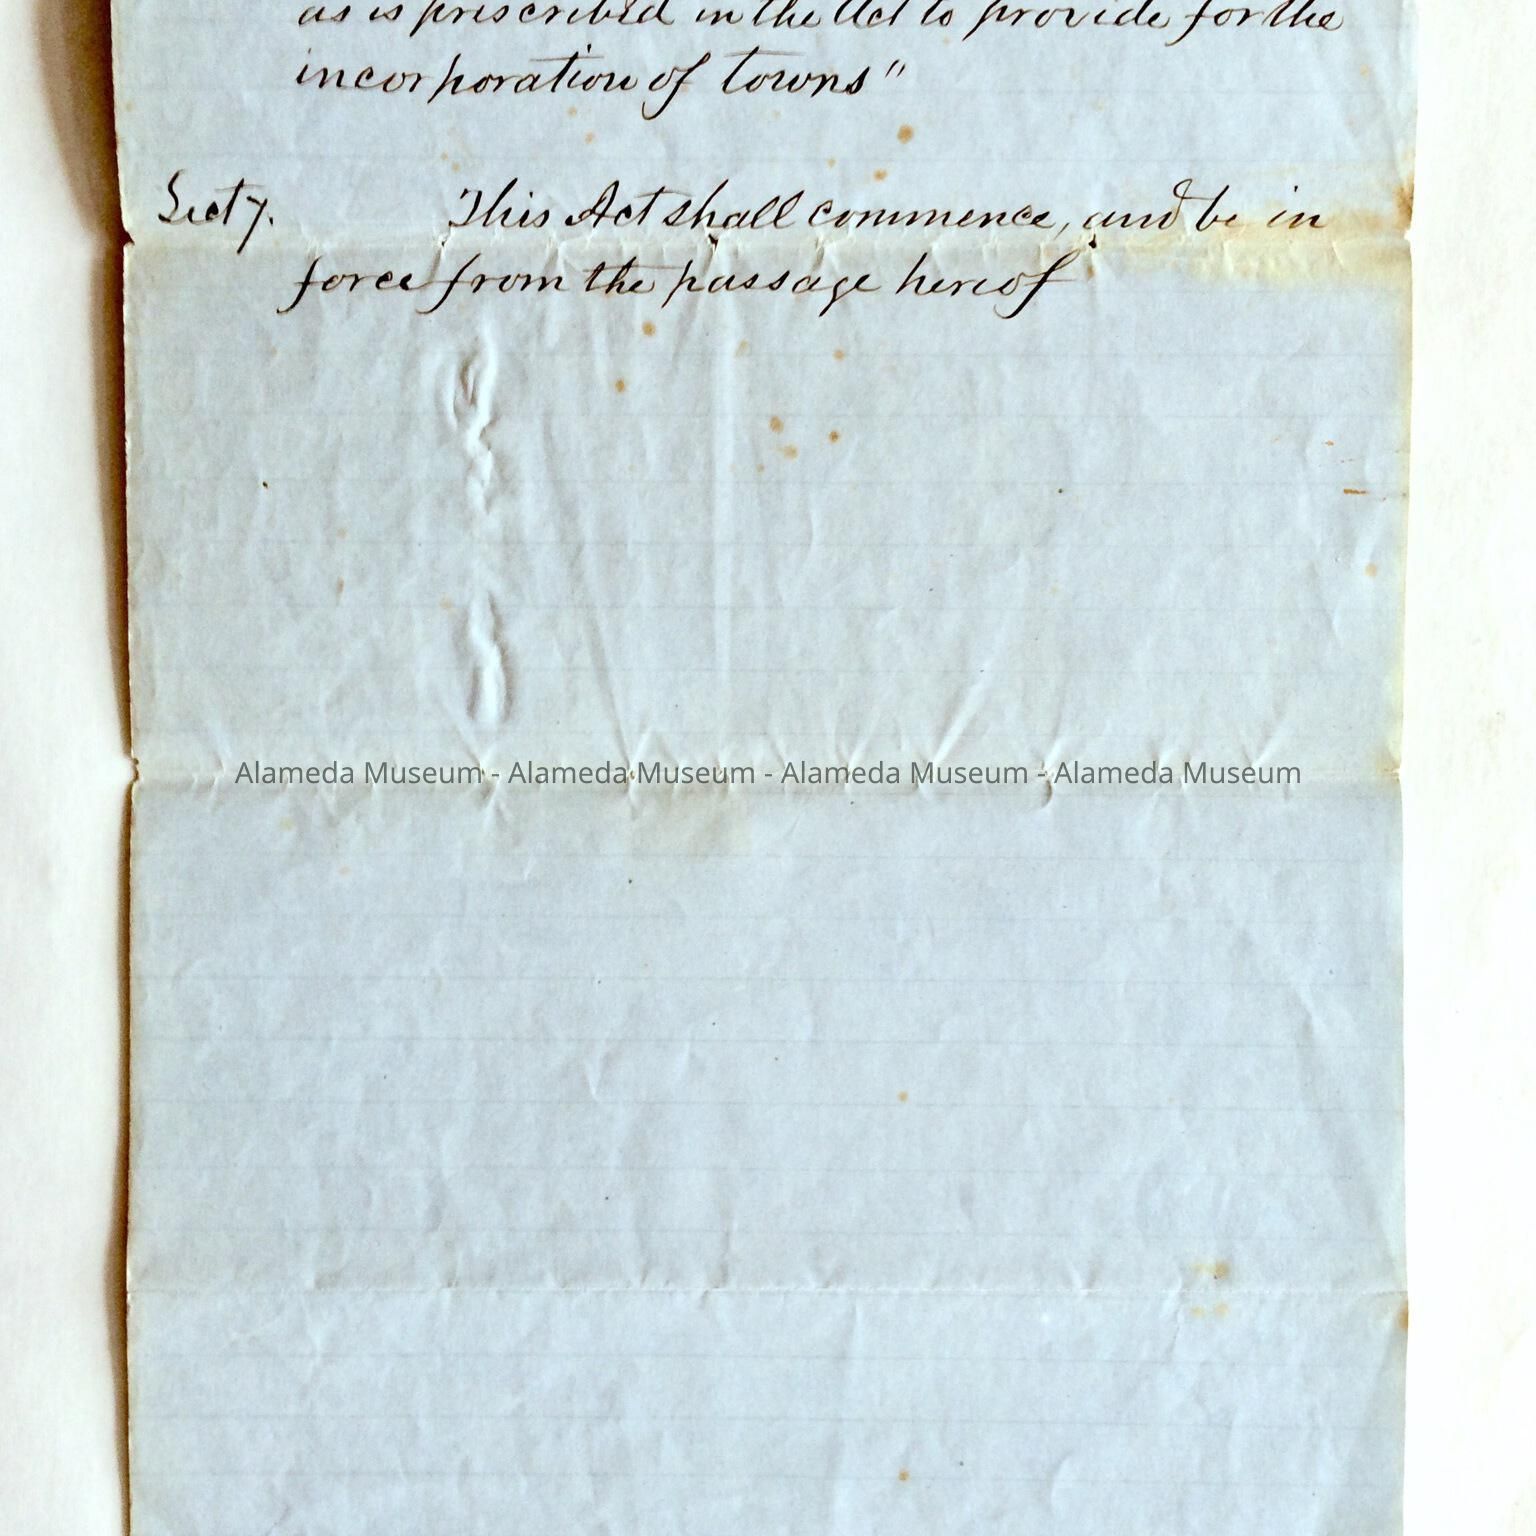 as is prescribed in the Act to provide for the
incorporation of towns"
Sect 7. This Act shall commence, and be in
force from the passage hereof
Alameda Museum - Alameda Museum - Alameda Museum - Alameda Museum